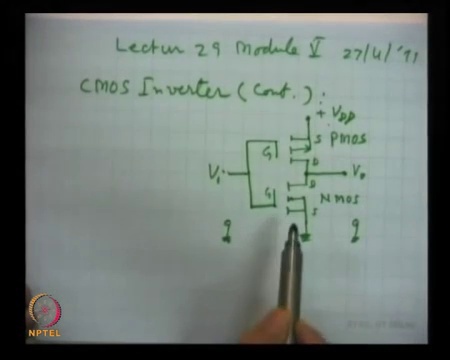 Lectur 29 Module V 27/4/'11
CMOS Inverter (Cont.) :
+ VDD
S PMOS
G
D
Vi
Vo
D
G
NMOS
S
NPTEL